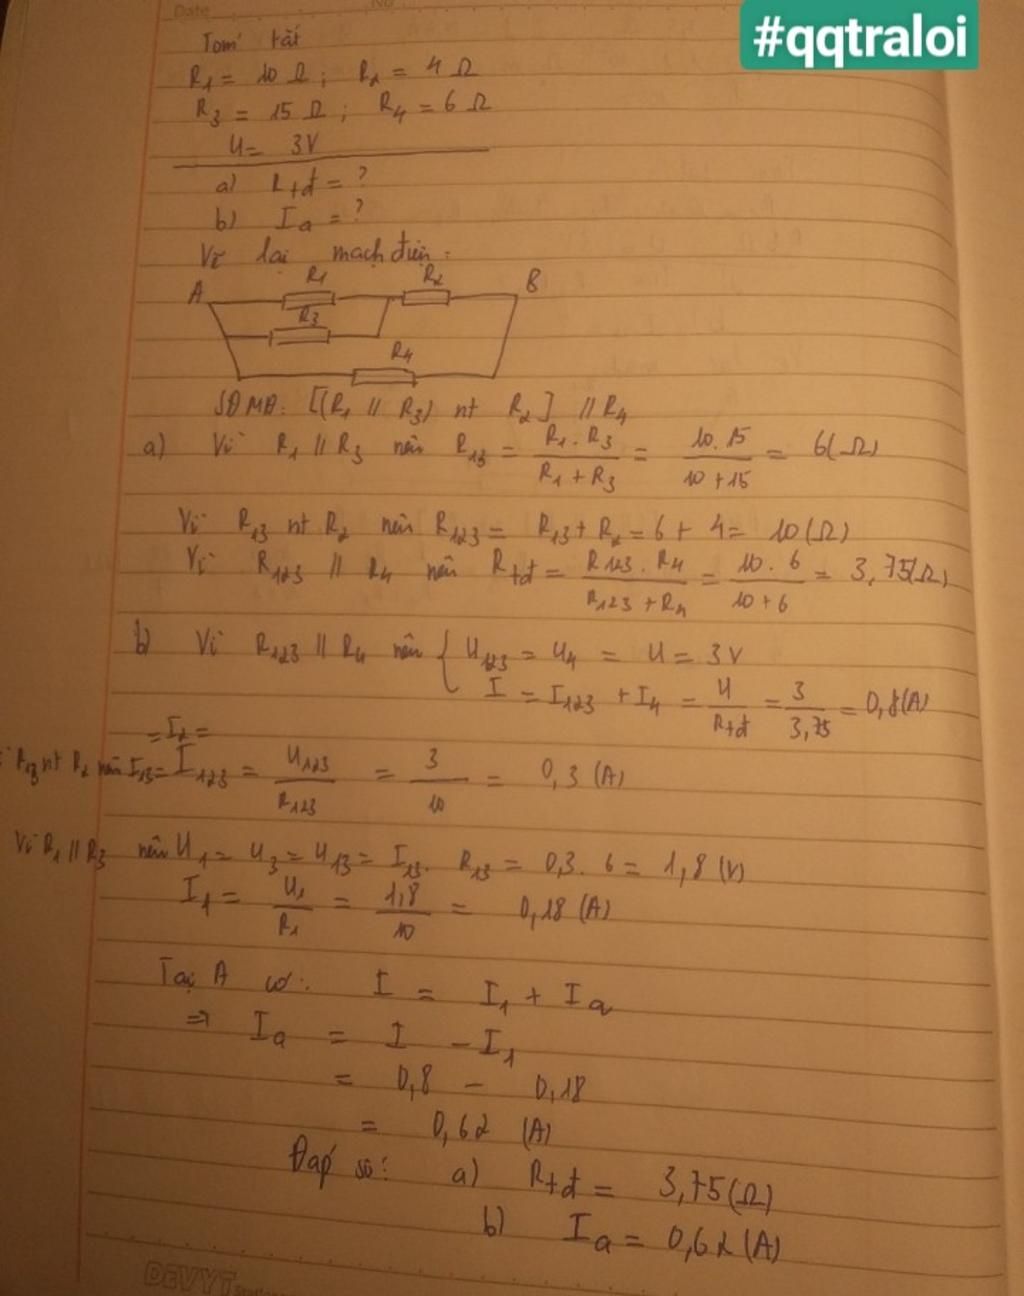 Date No
#qqtraloi
Tóm tắt
R1 = 10 Ω ; R2 = 4 Ω
R3 = 15 Ω ; R4 = 6 Ω
U = 3V
a) Rtđ = ?
b) Ia = ?
Vẽ lại mạch điện :
A R1 R2 B
R3
R4
SĐMĐ: [(R1 // R3) nt R2] // R4
a) Vì R1 // R3 nên R13 = R1 . R3 / R1 + R3 = 10.15 / 10+15 = 6(Ω)
Vì R13 nt R2 nên R123 = R13 + R2 = 6 + 4 = 10(Ω)
Vì R123 // R4 nên Rtđ = R123 . R4 / R123 + R4 = 10 . 6 / 10+6 = 3,75(Ω)
b) Vì R123 // R4 nên { U123 = U4 = U = 3V
I = I123 + I4 = U / Rtđ = 3 / 3,75 = 0,8(A)
= I2 =
R13 nt R2 nên I13 = I123 = U123 / R123 = 3 / 10 = 0,3 (A)
Vì R1 // R3 nên U1 = U3 = U13 = I13 . R13 = 0,3 . 6 = 1,8 (V)
I1 = U1 / R1 = 1,8 / 10 = 0,18 (A)
Tại A có: I = I1 + Ia
=> Ia = I - I1
= 0,8 - 0,18
= 0,62 (A)
Đáp số: a) Rtđ = 3,75(Ω)
b) Ia = 0,62(A)